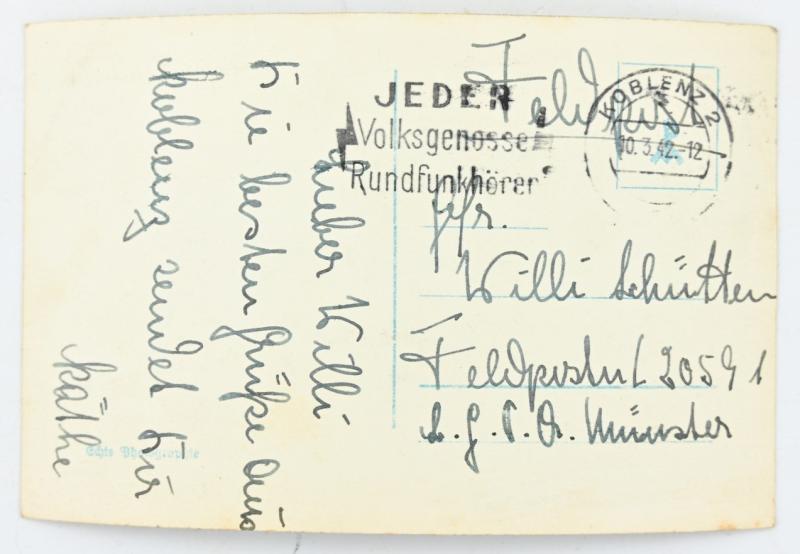 Feldpost
JEDER
Volksgenosse
Rundfunkhörer
KOBLENZ 2
10.3.42.-12
Gefr.
Willi Schütten
Feldpostnr. 20591
L.G.P.A. Münster
Lieber Willi
Die besten Grüße aus
Koblenz sendet Dir
Käthe
Echte Photographie